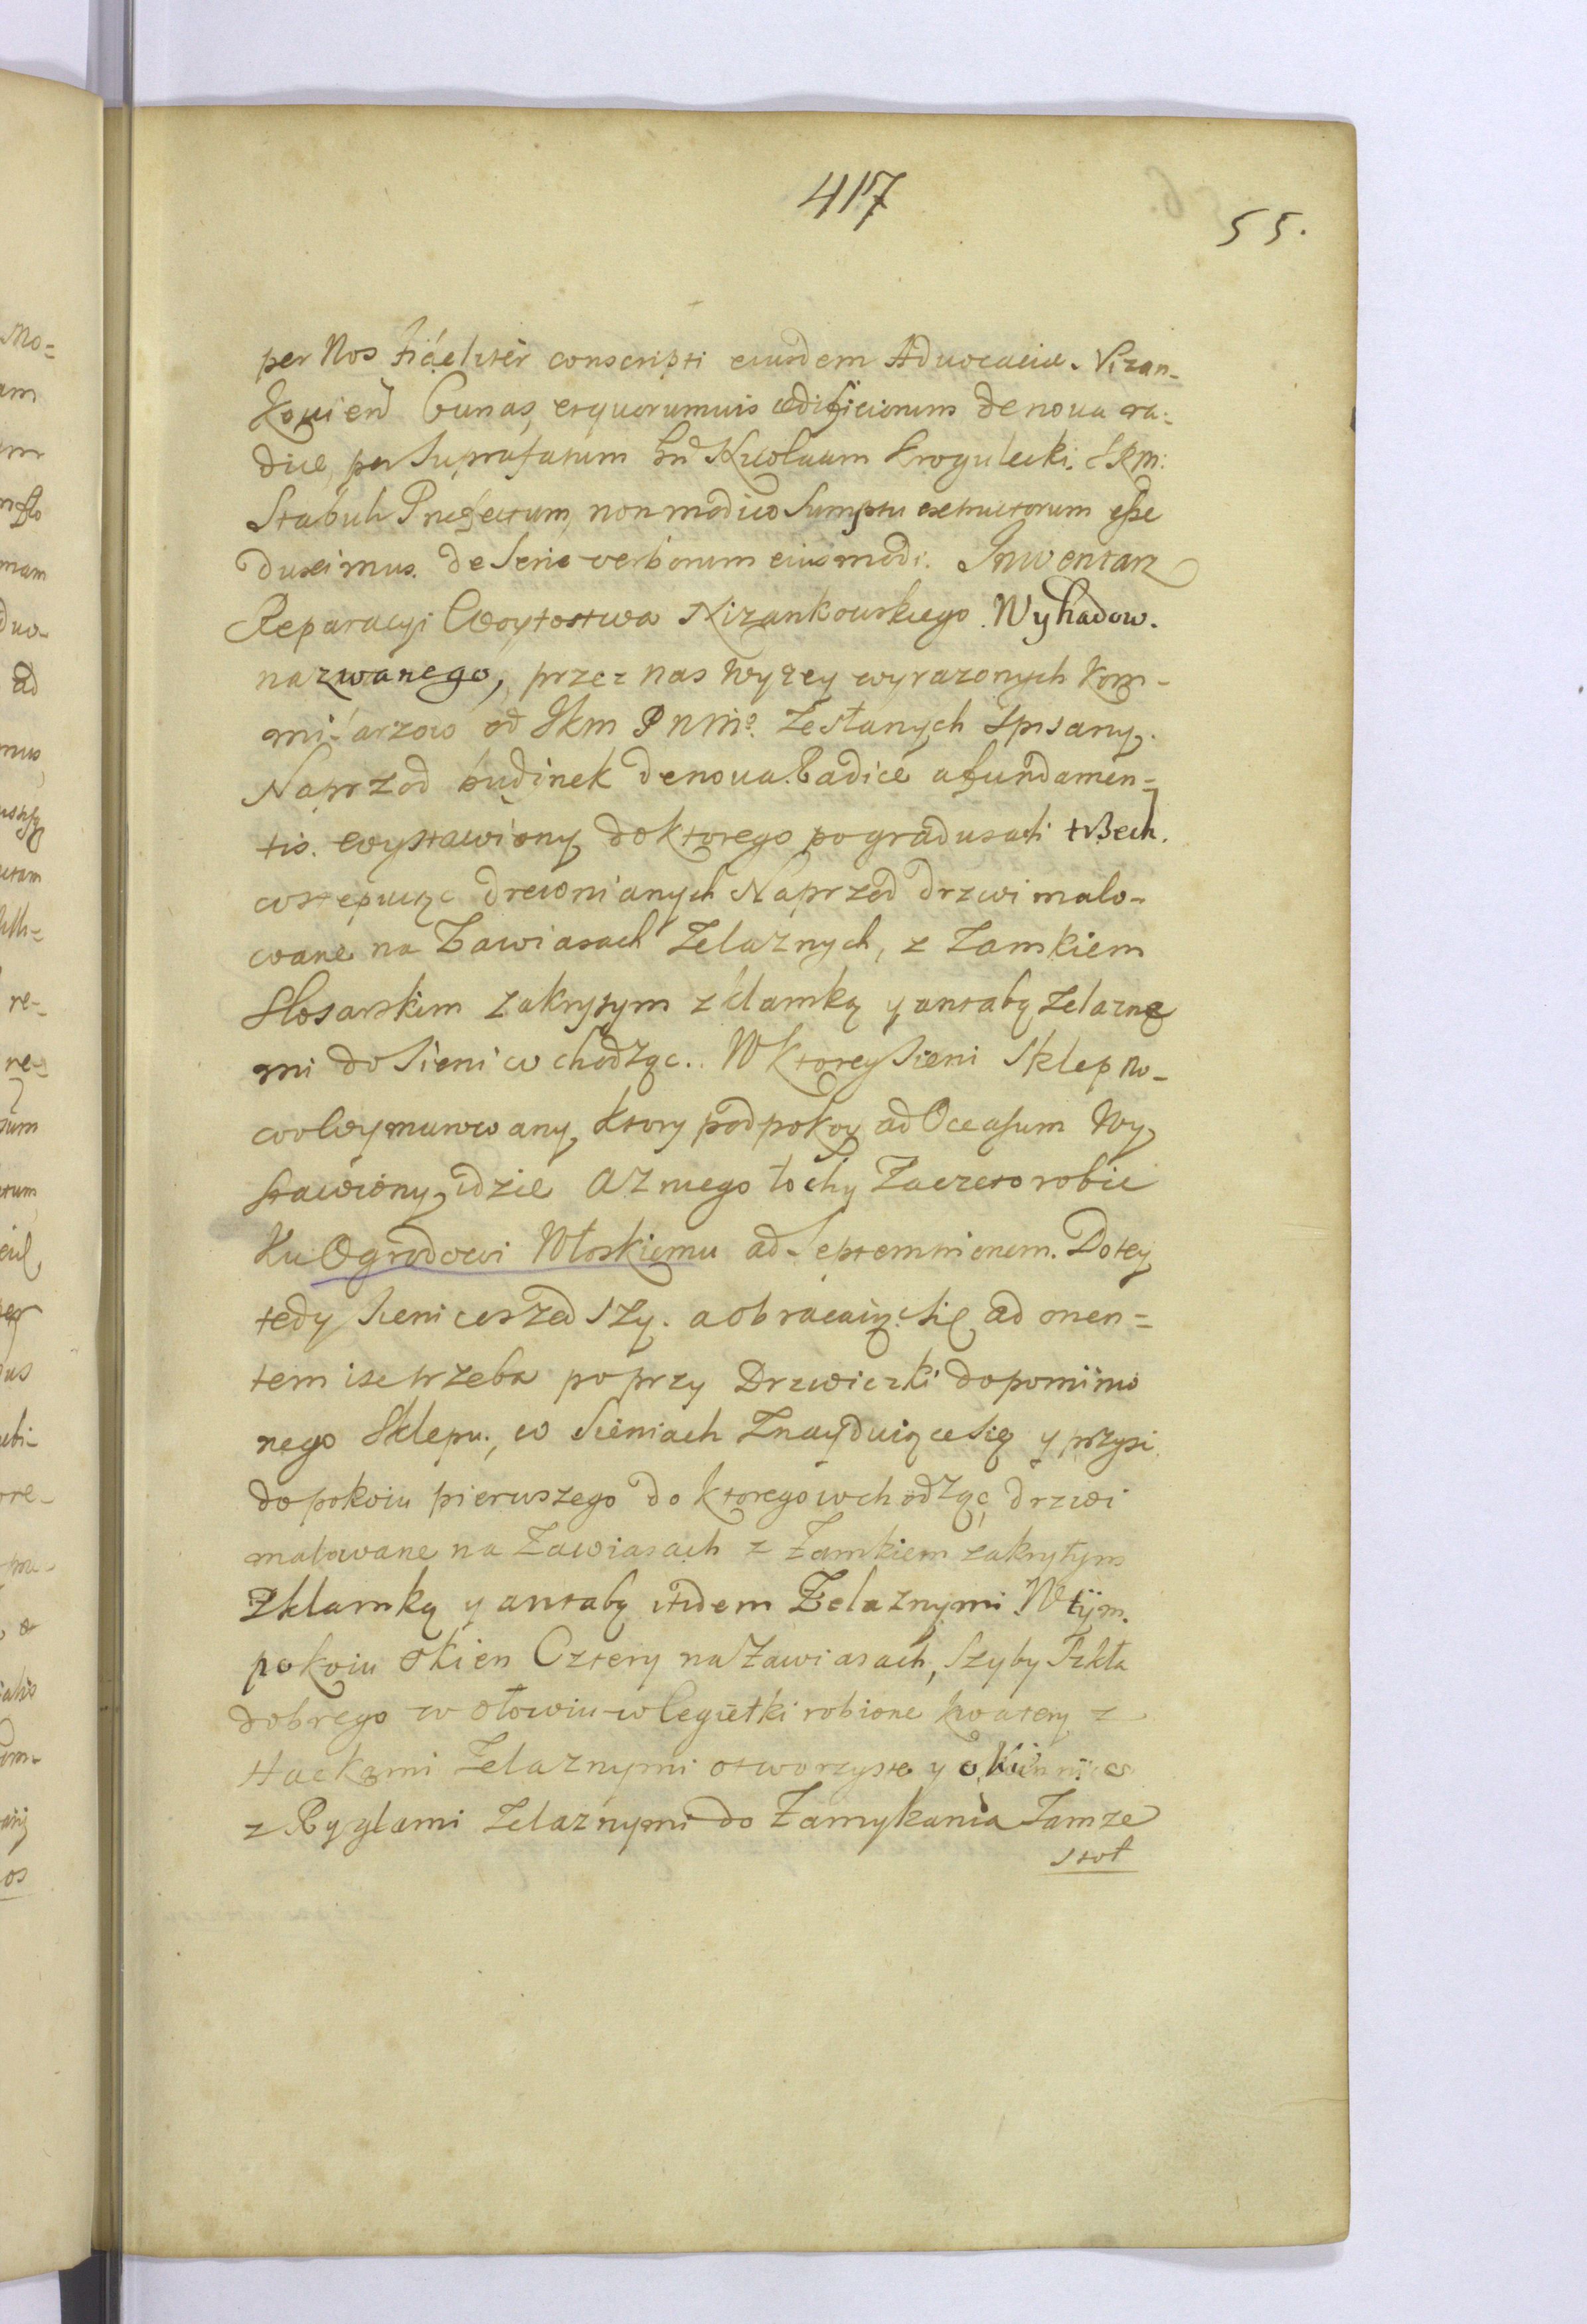 417
55.
per Nos fideliter conscripti eiusdem Advocaciæ. Nizan-
kovien̄ Cunas, etquorumuis ædificiorum denoua ra-
dice, per Suprafatum Gn̄ Nicolaum Krogulecki. SRM:
Stabuli Præfectum, nonmodico Sumptu extructorum eße
duximus. de Serie verborum eiusmodi. Inwentarz
Reparacyi Woytostwa Nizankowskiego. Wyhadow.
nazwanego, przez nas wyzey wyrazonych Kom-
mißarzow od Jkm PNMo. Zesłanych Spisany.
Naprzod budinek denoua Radice afundamen-
tis. wystawiony doktorego pogradusach trzech.
wstępuiąc drewnianych Naprzod drzwi malo-
wane na Zawiasach Zelaznych, z Zamkiem
Slosarskim zakrytym zklamką y antabą zelazne
mi do Sieni wchodząc.. Wktorey Sieni Sklep no-
wowymurowany, ktory podpokoy ad Occasum Wy-
stawiony, idzie Azniego lochy Zaczeto robic
Ku Ogrodowi Włoskiemu ad Septemtrionem. Dotey
tedy Sieni wszedszy. aobracaiąc Się ad orien=
tem isc trzeba poprzy Drzwiczki dopomimo
nego Sklepu., w Sieniach Znayduiące Się y przysc
dopokoiu pierwszego do ktoregowchodząc drzwi
malowane na Zawiasach z Zamkiem zakrytym
zklamką y antabą itidem Zelaznymi. Wtym.
pokoiu okien Cztery naZawiasach, Szyby Szkła
dobrego w ołowiu robione kwatery z
Hackami Zelaznymi otworzyste y okiennice
z Ryglami Zelaznymi do Zamykania Tamze
stoł